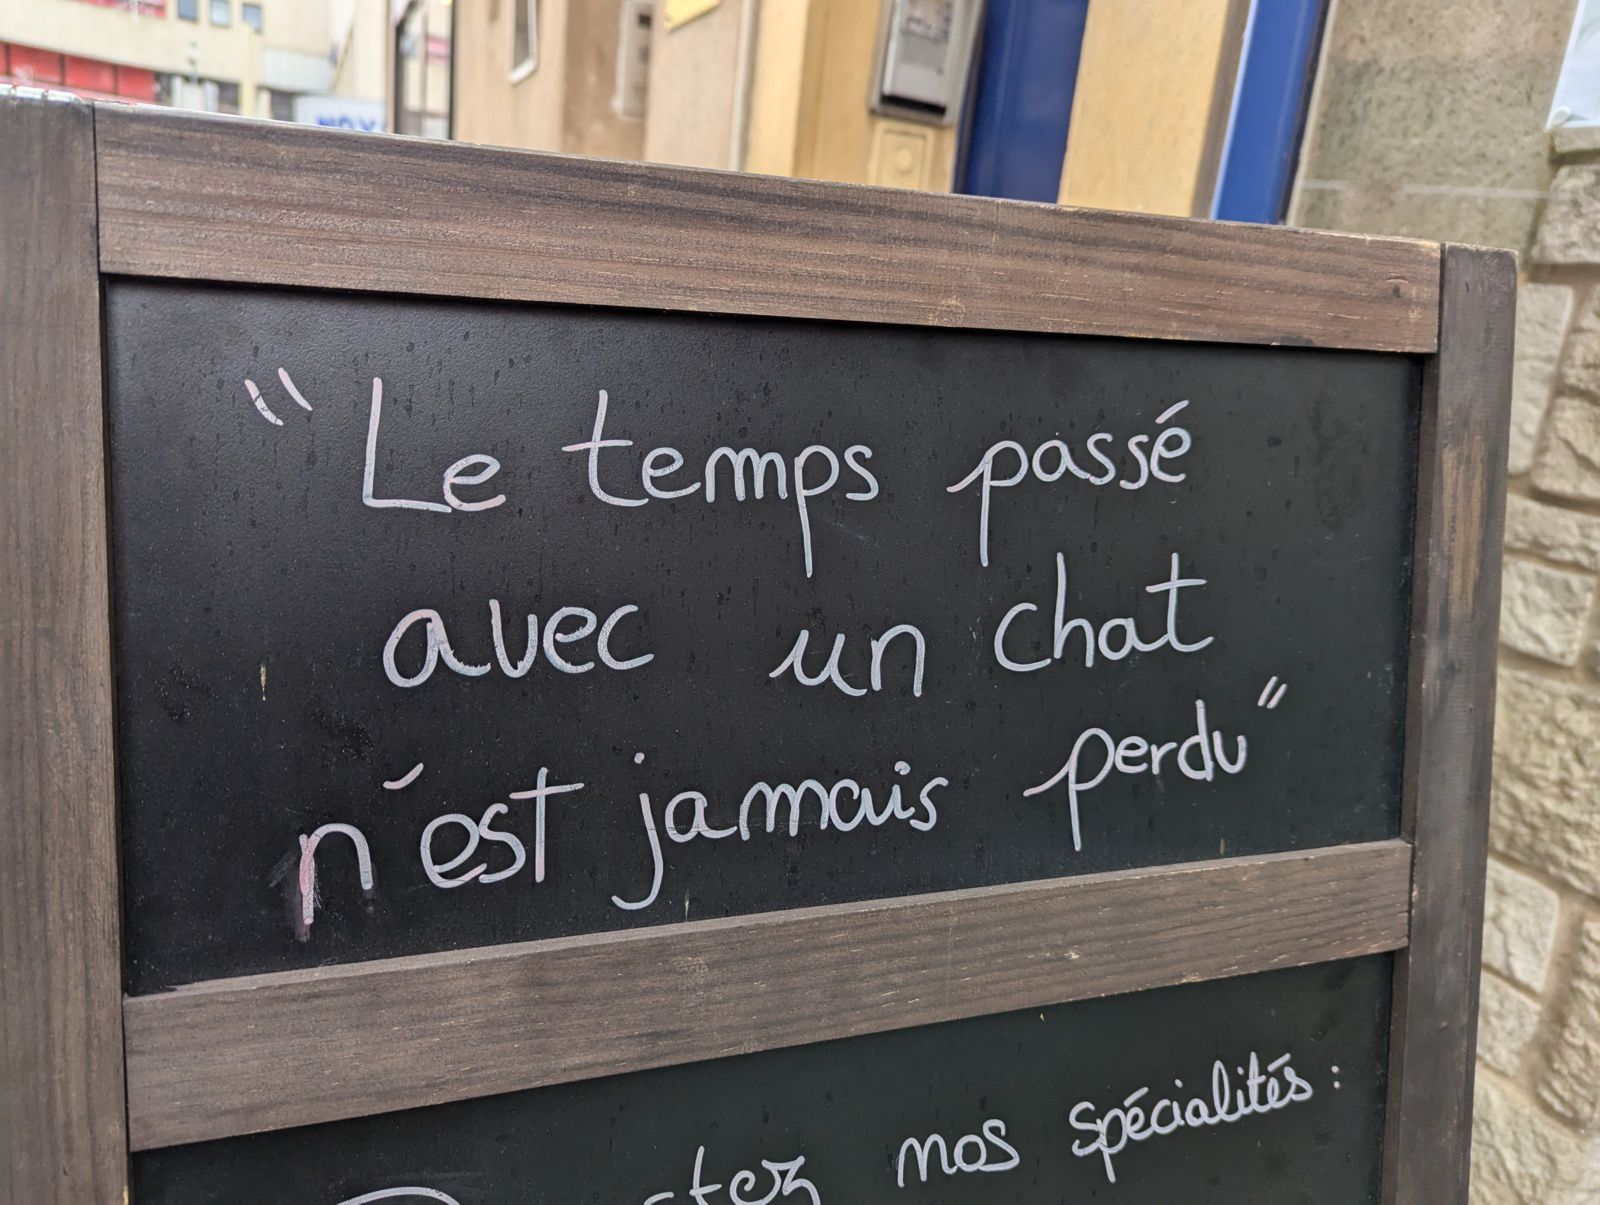 "Le temps passé
avec un chat
n'est jamais perdu"
nos spécialités :